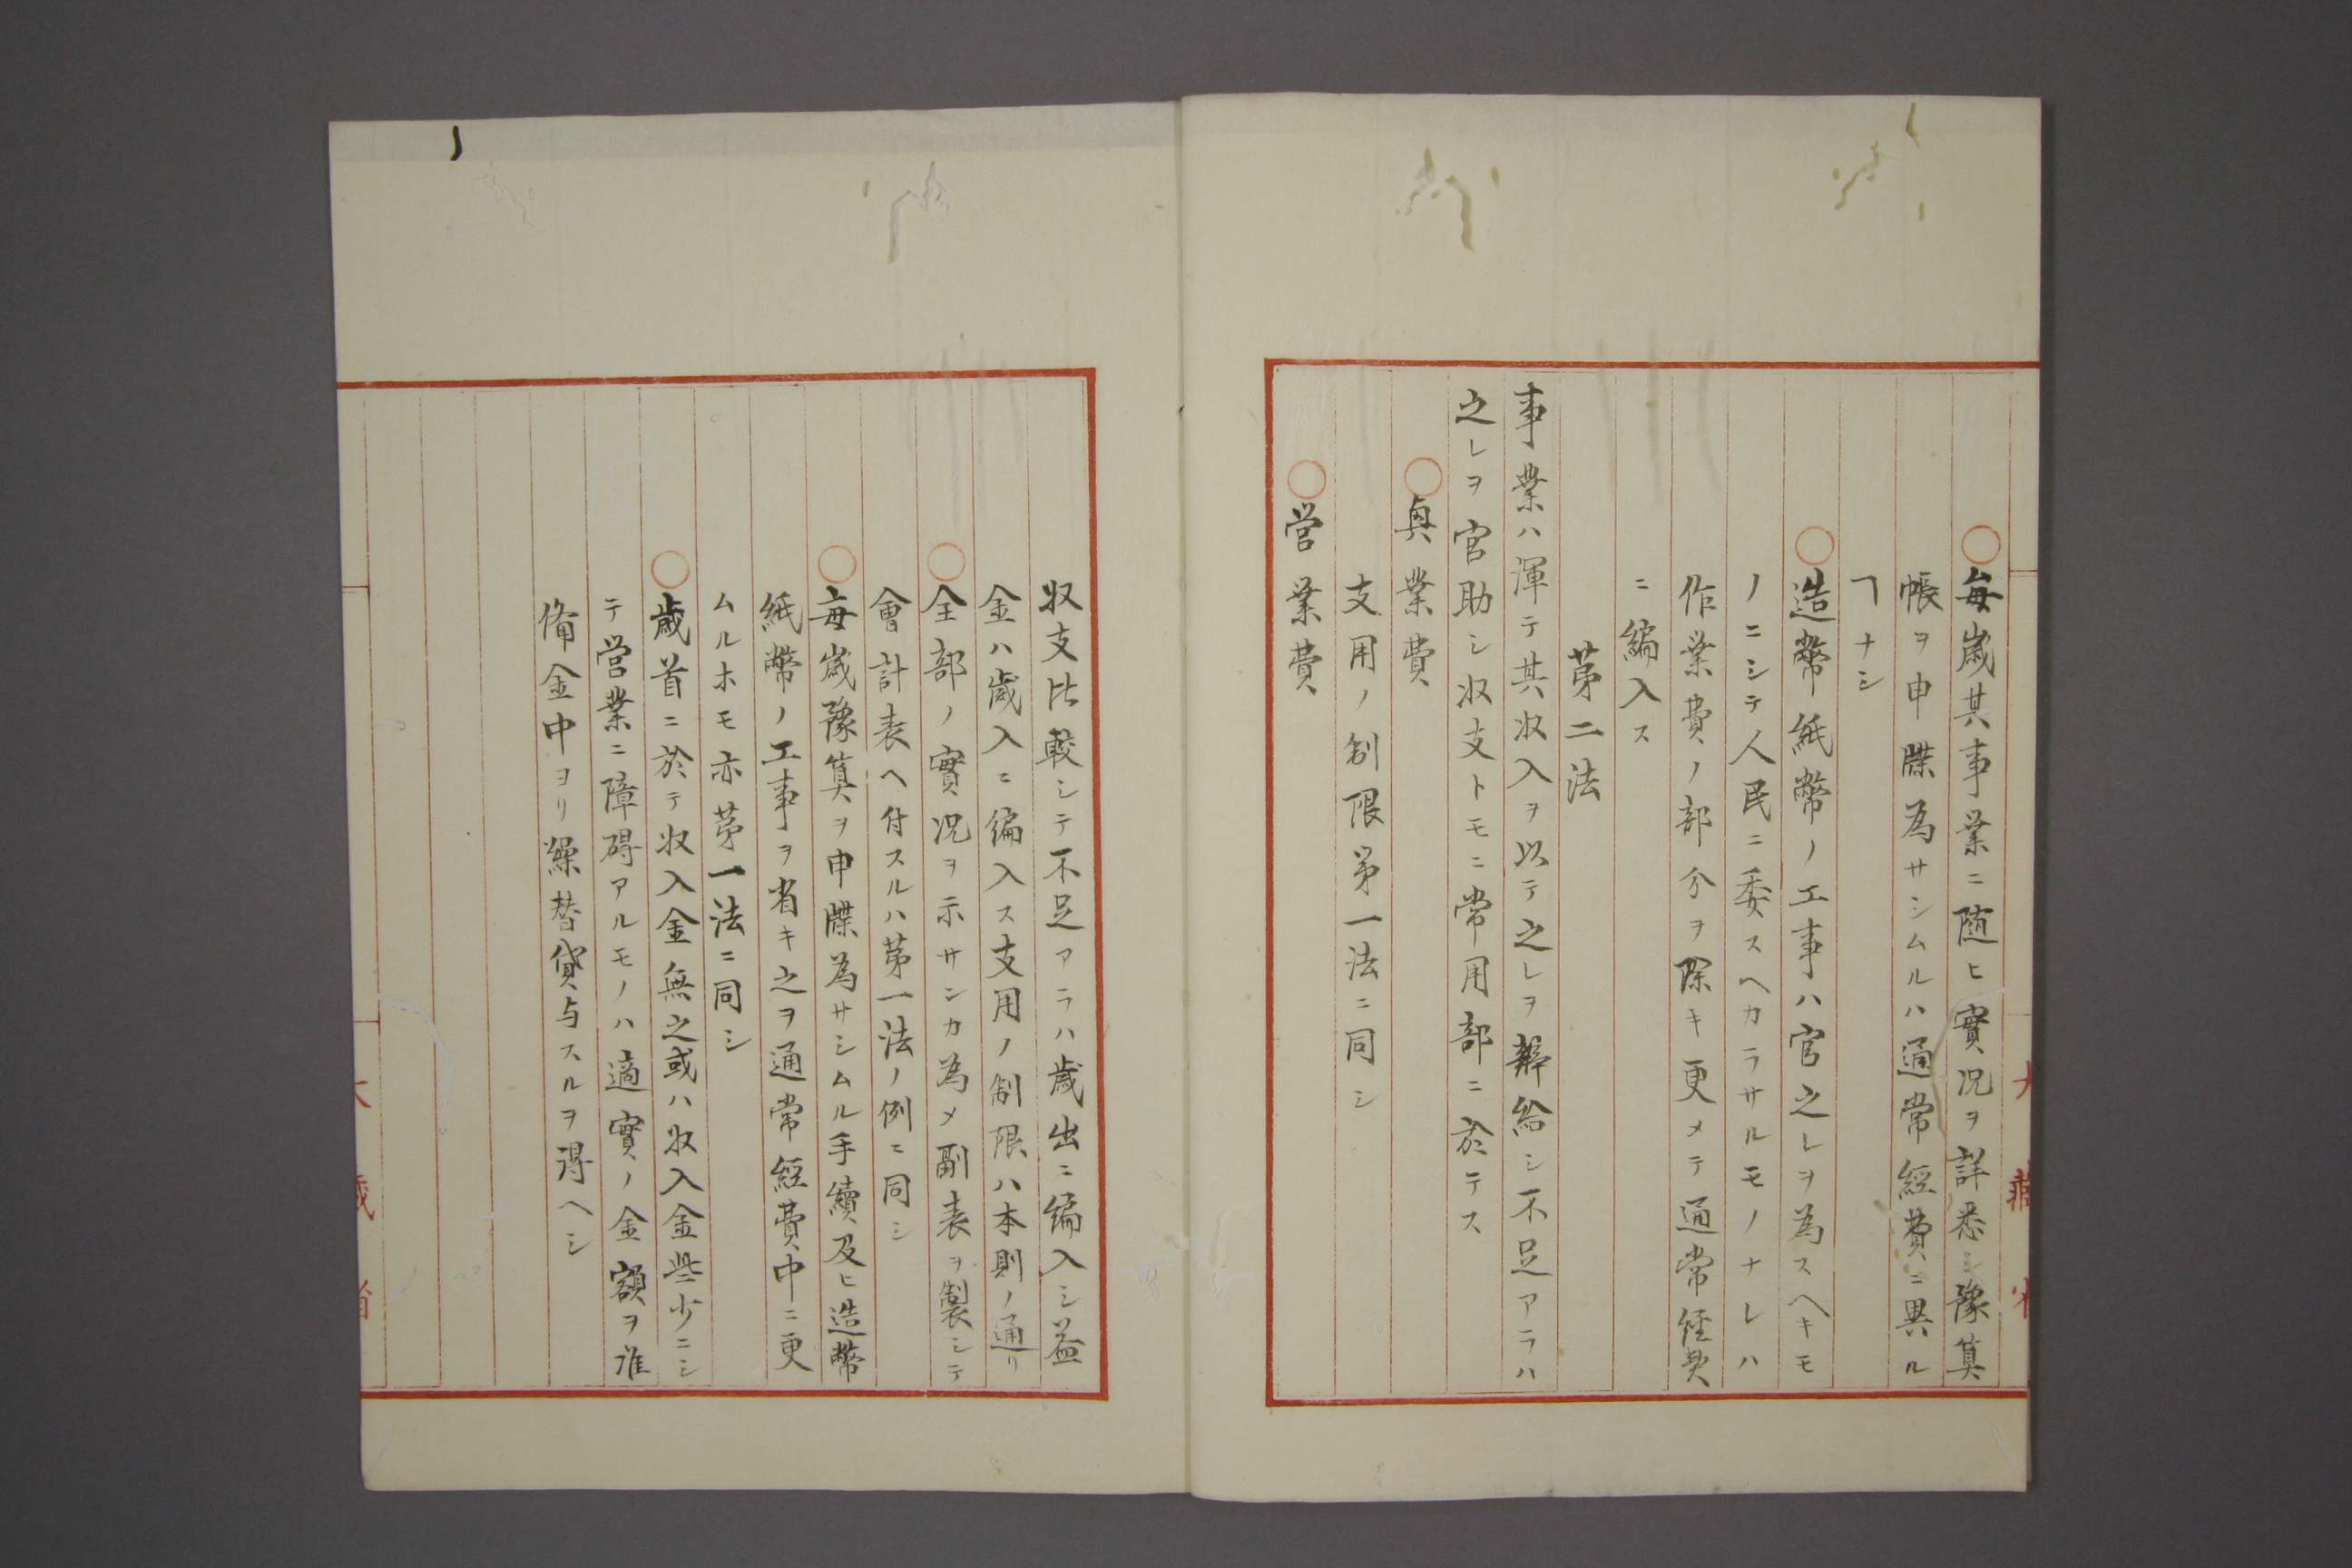 ○毎歳其事業ニ随ヒ實况ヲ詳悉シ豫算
帳ヲ申牒為サシムルハ通常経費ニ異ル
ヿナシ
○造幣紙幣ノ工事ハ官之レヲ為スヘキモ
ノニシテ人民ニ委スヘカラサルモノナレハ
作業費ノ部分ヲ除キ更メテ通常経費
ニ編入ス
第二法
事業ハ渾テ其収入ヲ以テ之レヲ辨給シ不足アラハ
之レヲ官助シ収支トモニ常用部ニ於テス
○興業費
支用ノ制限第一法ニ同シ
○営業費
収支比較シテ不足アラハ歳出ニ編入シ益
金ハ歳入ニ編入ス支用ノ制限ハ本則ノ通リ
○全部ノ實况ヲ示サンカ為メ副表ヲ製シテ
會計表ヘ付スルハ第一法ノ例ニ同シ
○毎歳豫算ヲ申牒為サシムル手續及ヒ造幣
紙幣ノ工事ヲ省キ之ヲ通常経費中ニ更
ムルホモ亦第一法ニ同シ
○歳首ニ於テ収入金無之或ハ収入金些少ニシ
テ営業ニ障碍アルモノハ適實ノ金額ヲ准
備金中ヨリ繰替貸与スルヲ得ヘシ
大藏省